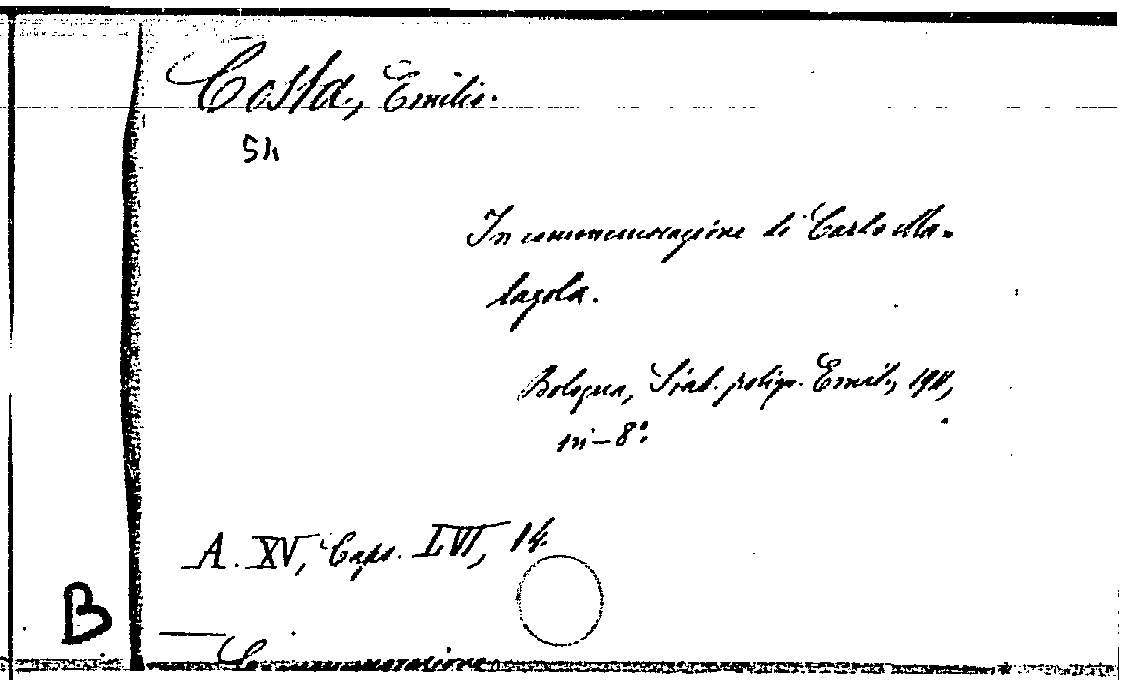 Costa, Emilio.
54
In commemorazione di Carlo Ma-
lagola.
Bologna, Stab. poligr. Emil., 1911,
in-8°.
A. XV, Caps. LVI, 14.
B
Commemorazione